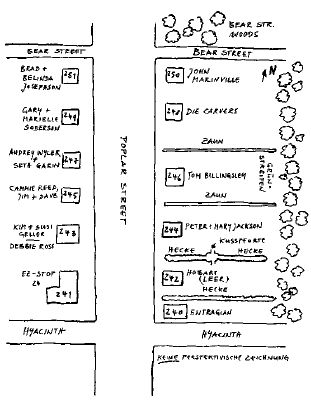 BEAR STR.
WOODS
BEAR STREET
BEAR STREET
BRAD +
BELINDA
JOSEPHSON
251
GARY +
MARIELLE
SODERSON
249
AUDREY WYLER
+
SETH GARIN
247
CAMMIE REED,
JIM + DAVE
245
KIM + SUSI
GELLER
DEBBIE ROSS
243
EZ-STOP
24
241
HYACINTH
POPLAR STREET
250
JOHN
MARINVILLE
N
248
DIE CARVERS
ZAUN
246
TOM BILLINGSLEY
GRÜN-
STREIFEN
ZAUN
244
PETER + MARY JACKSON
KUSSPFORTE
HECKE
HECKE
242
HOBART
(LEER)
HECKE
240
ENTRAGIAN
HYACINTH
KEINE PERSPEKTIVISCHE ZEICHNUNG